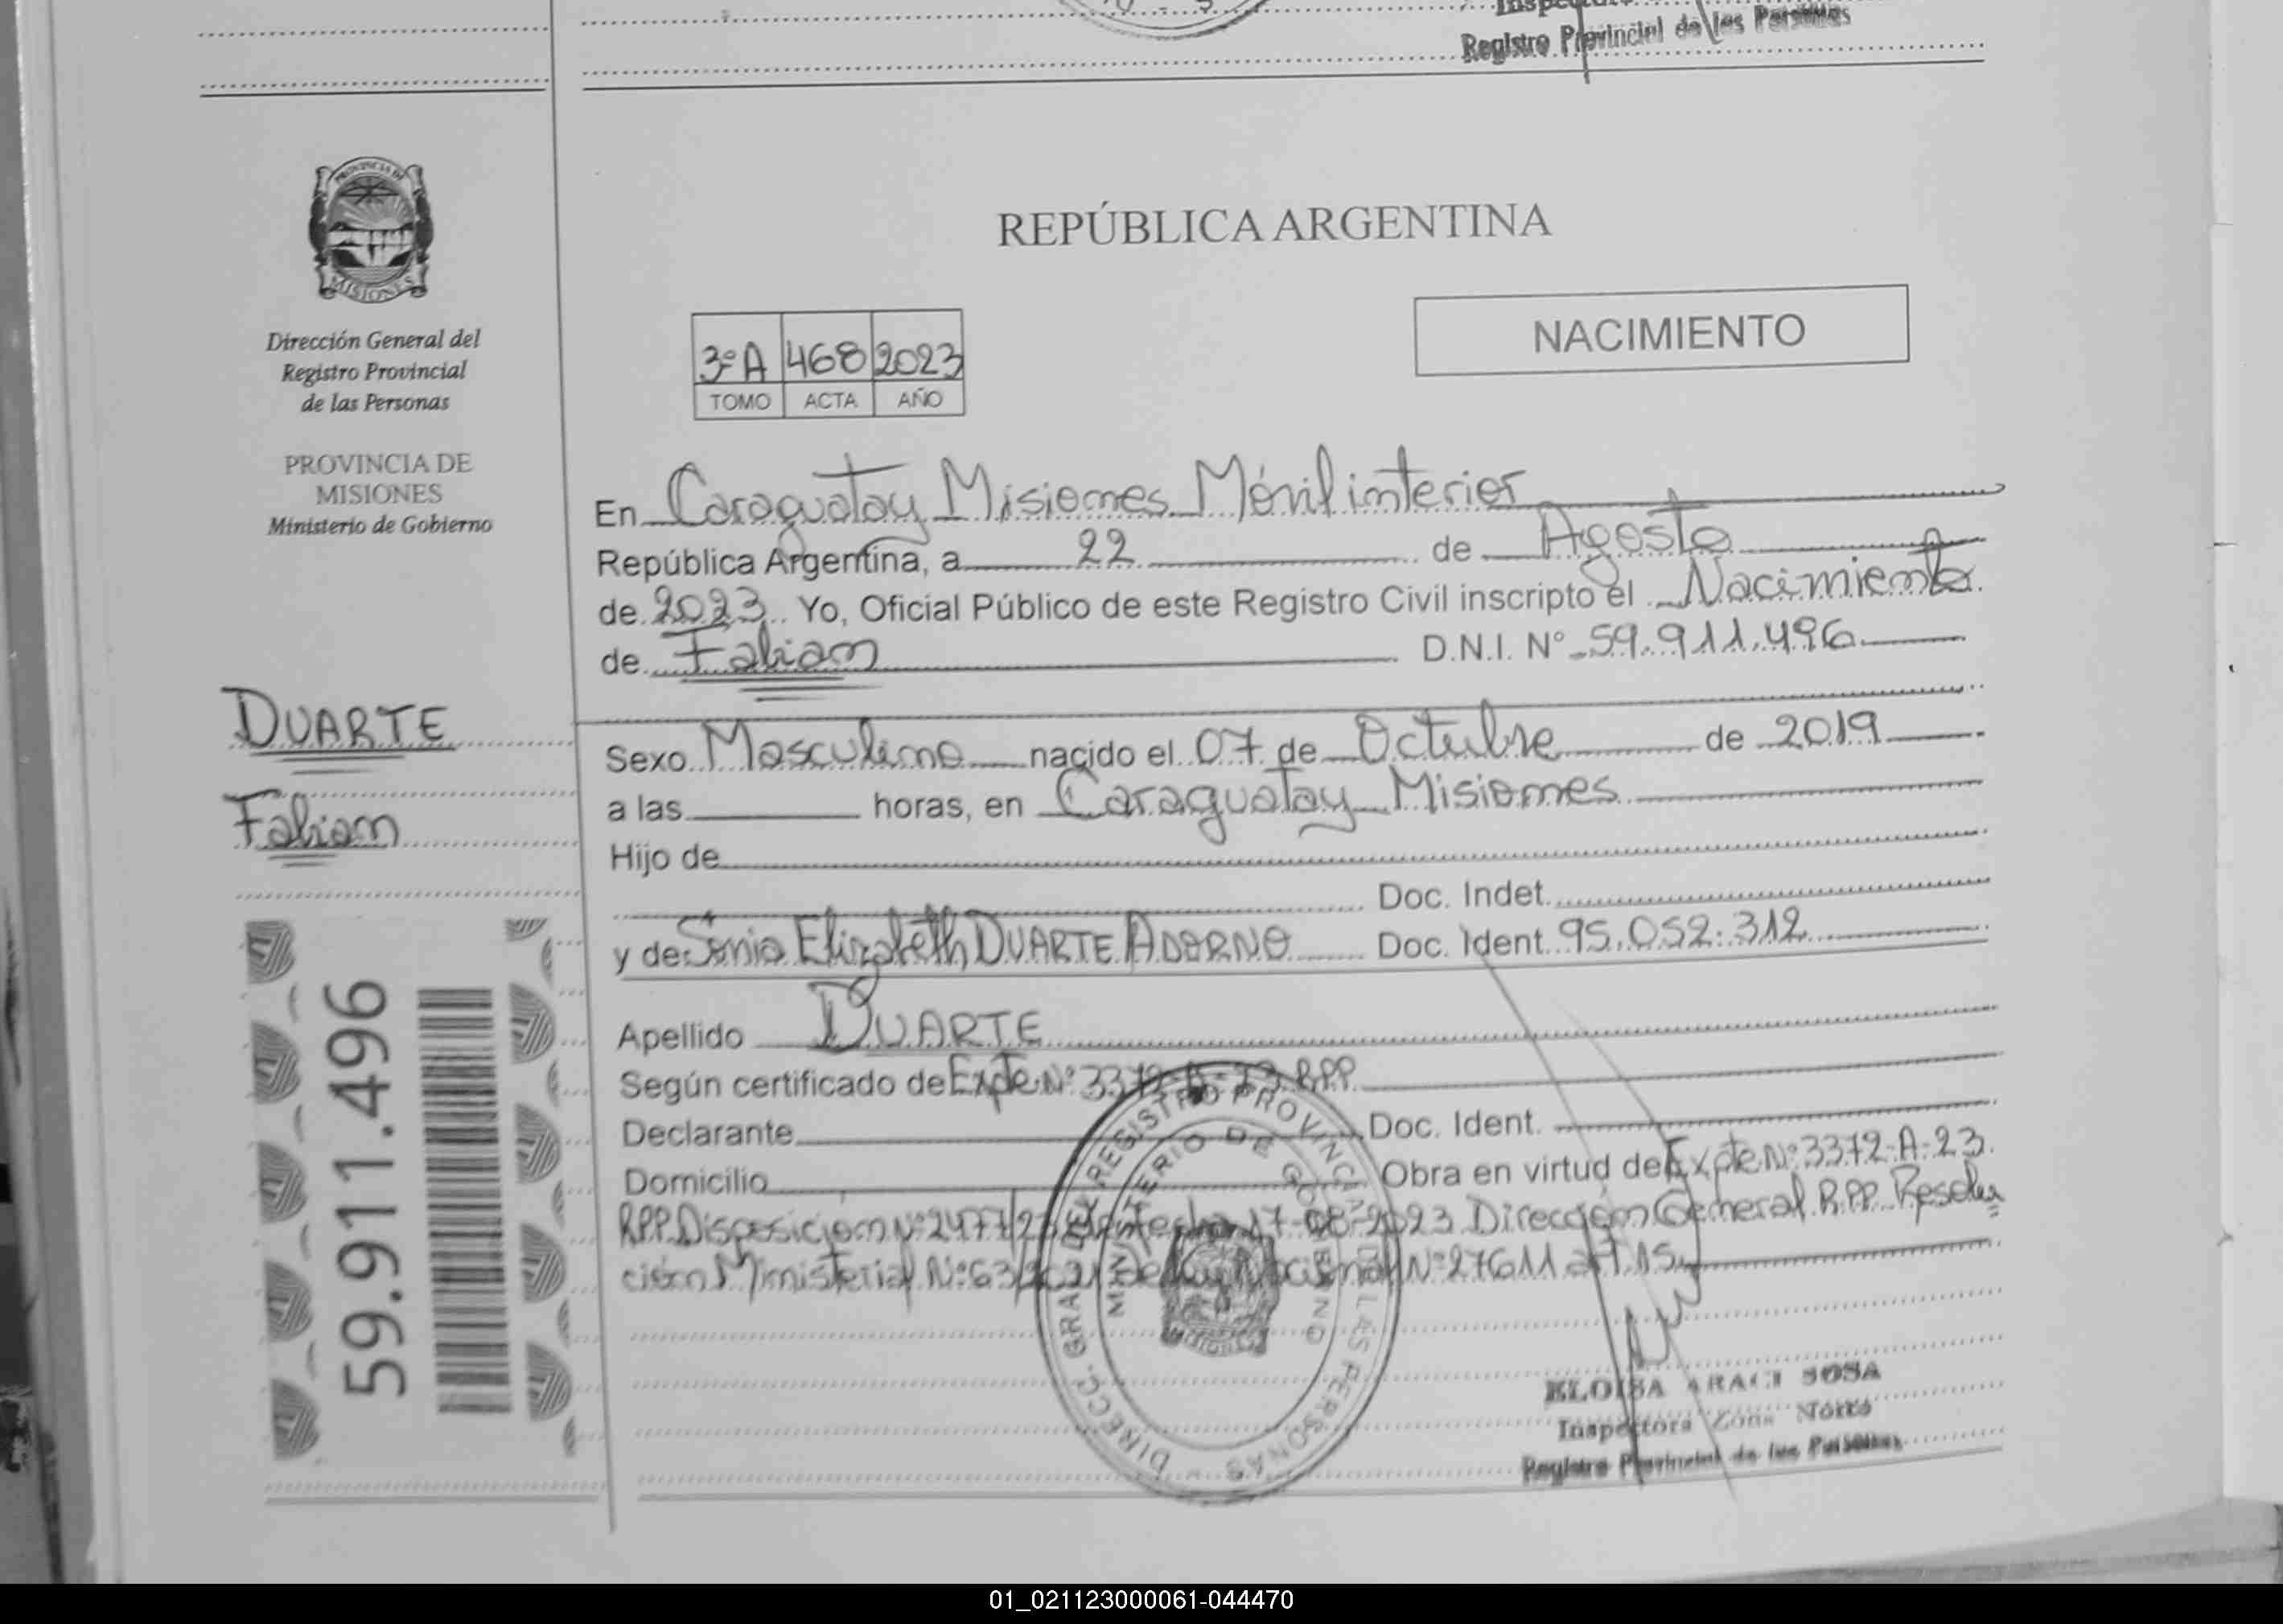 Registro Provincial de las Personas
PROVINCIA DE
MISIONES
Dirección General del
Registro Provincial
de las Personas
PROVINCIA DE
MISIONES
Ministerio de Gobierno
DUARTE
Fabian
59.911.496
REPÚBLICA ARGENTINA
NACIMIENTO
3º A 468 2023
TOMO ACTA AÑO
En Caraguatay Misiones Móvil interior
República Argentina, a 22 de Agosto
de 2023 Yo, Oficial Público de este Registro Civil inscripto el Nacimiento
de Fabian D.N.I. Nº 59.911.496
Sexo Masculino nacido el 07 de Octubre de 2019
a las horas, en Caraguatay Misiones
Hijo de
Doc. Indet.
y de Sonia Elizabeth DUARTE ADORNO Doc. Ident. 95.052.312
Apellido DUARTE
Según certificado de Expte Nº 3372-A-23 RPP.
Declarante Doc. Ident.
Domicilio Obra en virtud de Expte Nº 3372-A-23.
RPP. Disposición Nº 2477/23 de fecha 17-08-2023 Dirección General R.P.P. Resolu
ción Ministerial Nº 63/2021 de Ley Nacional Nº 27611 art 15
DIRECC. GRAL. DEL REGISTRO PROVINCIAL DE LAS PERSONAS
MINISTERIO DE GOBIERNO
ELOISA ARACI SOSA
Inspectora Zona Norte
Registro Provincial de las Personas
01_021123000061-044470